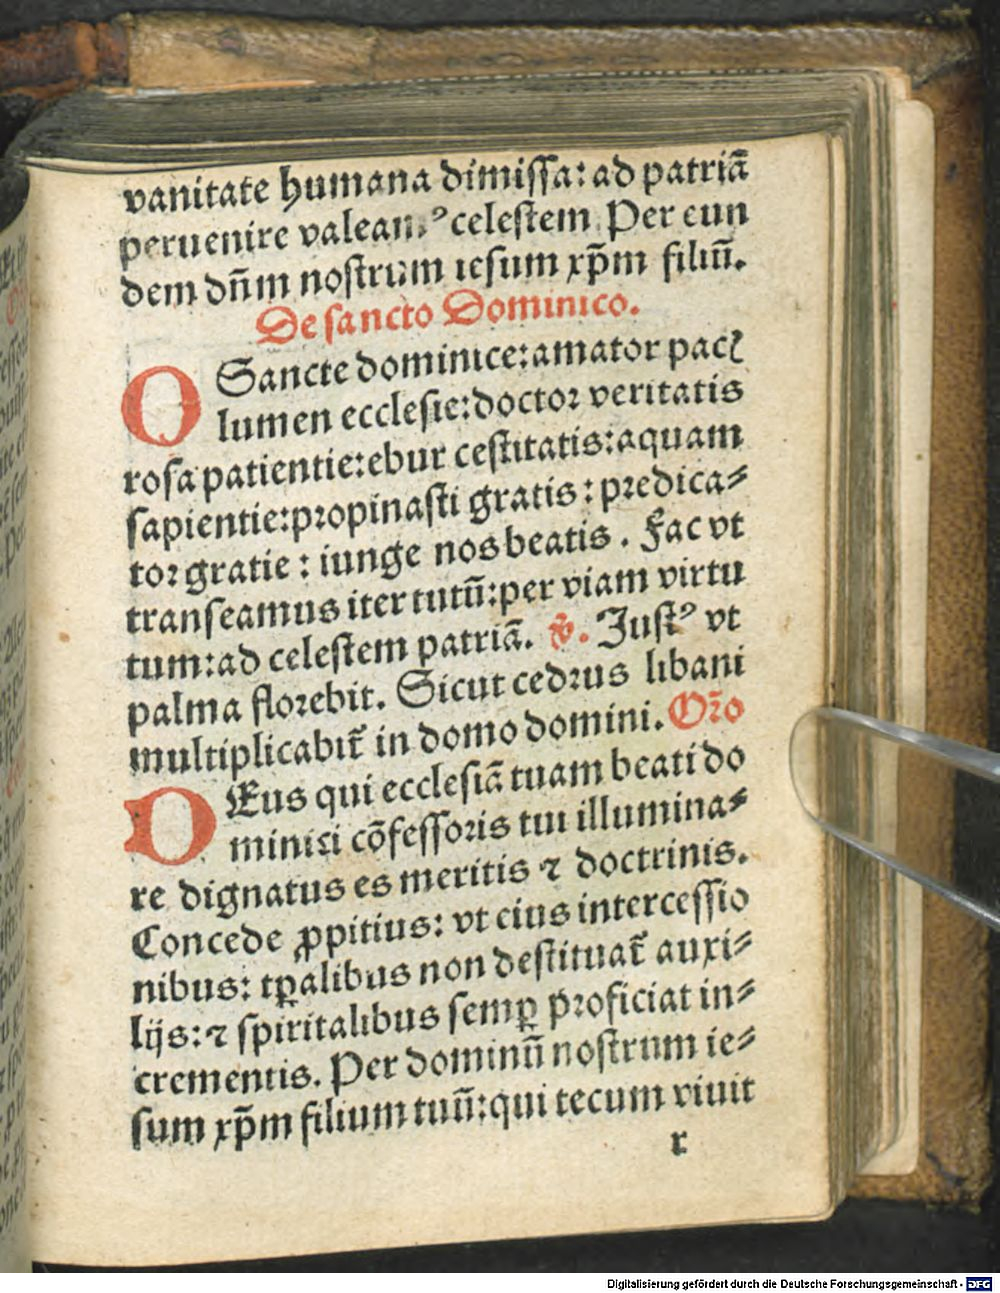 vanitate humana dimissa: ad patriā
peruenire valeamꝰ celestem. Per eun
dem dn̄m nostrum iesum xp̄m filiū.
De sancto Dominico.
O Sancte dominice: amator pacꝭ
lumen ecclesie: doctoꝛ veritatis
rosa patientie: ebur cestitatis: aquam
sapientie: pꝛopinasti gratis: pꝛedica⸗
toꝛ gratie: iunge nos beatis. Fac vt
transeamus iter tutū: per viam virtu
tum: ad celestem patriā. ℣. Justꝰ vt
palma floꝛebit. Sicut cedꝛus libani
multiplicabit̄ in domo domini. Oꝛ̄o
DEus qui ecclesiā tuam beati do
minici cōfessoꝛis tui illumina⸗
re dignatus es meritis ⁊ doctrinis.
Concede ꝓpitius: vt eius intercessio
nibus: tꝑalibus non destituat̄ auxi⸗
lijs: ⁊ spiritalibus semꝑ pꝛoficiat in⸗
crementis. Per dominū nostrum ie⸗
sum xp̄m filium tuū: qui tecum viuit
r
Digitalisierung gefördert durch die Deutsche Forschungsgemeinschaft - DFG